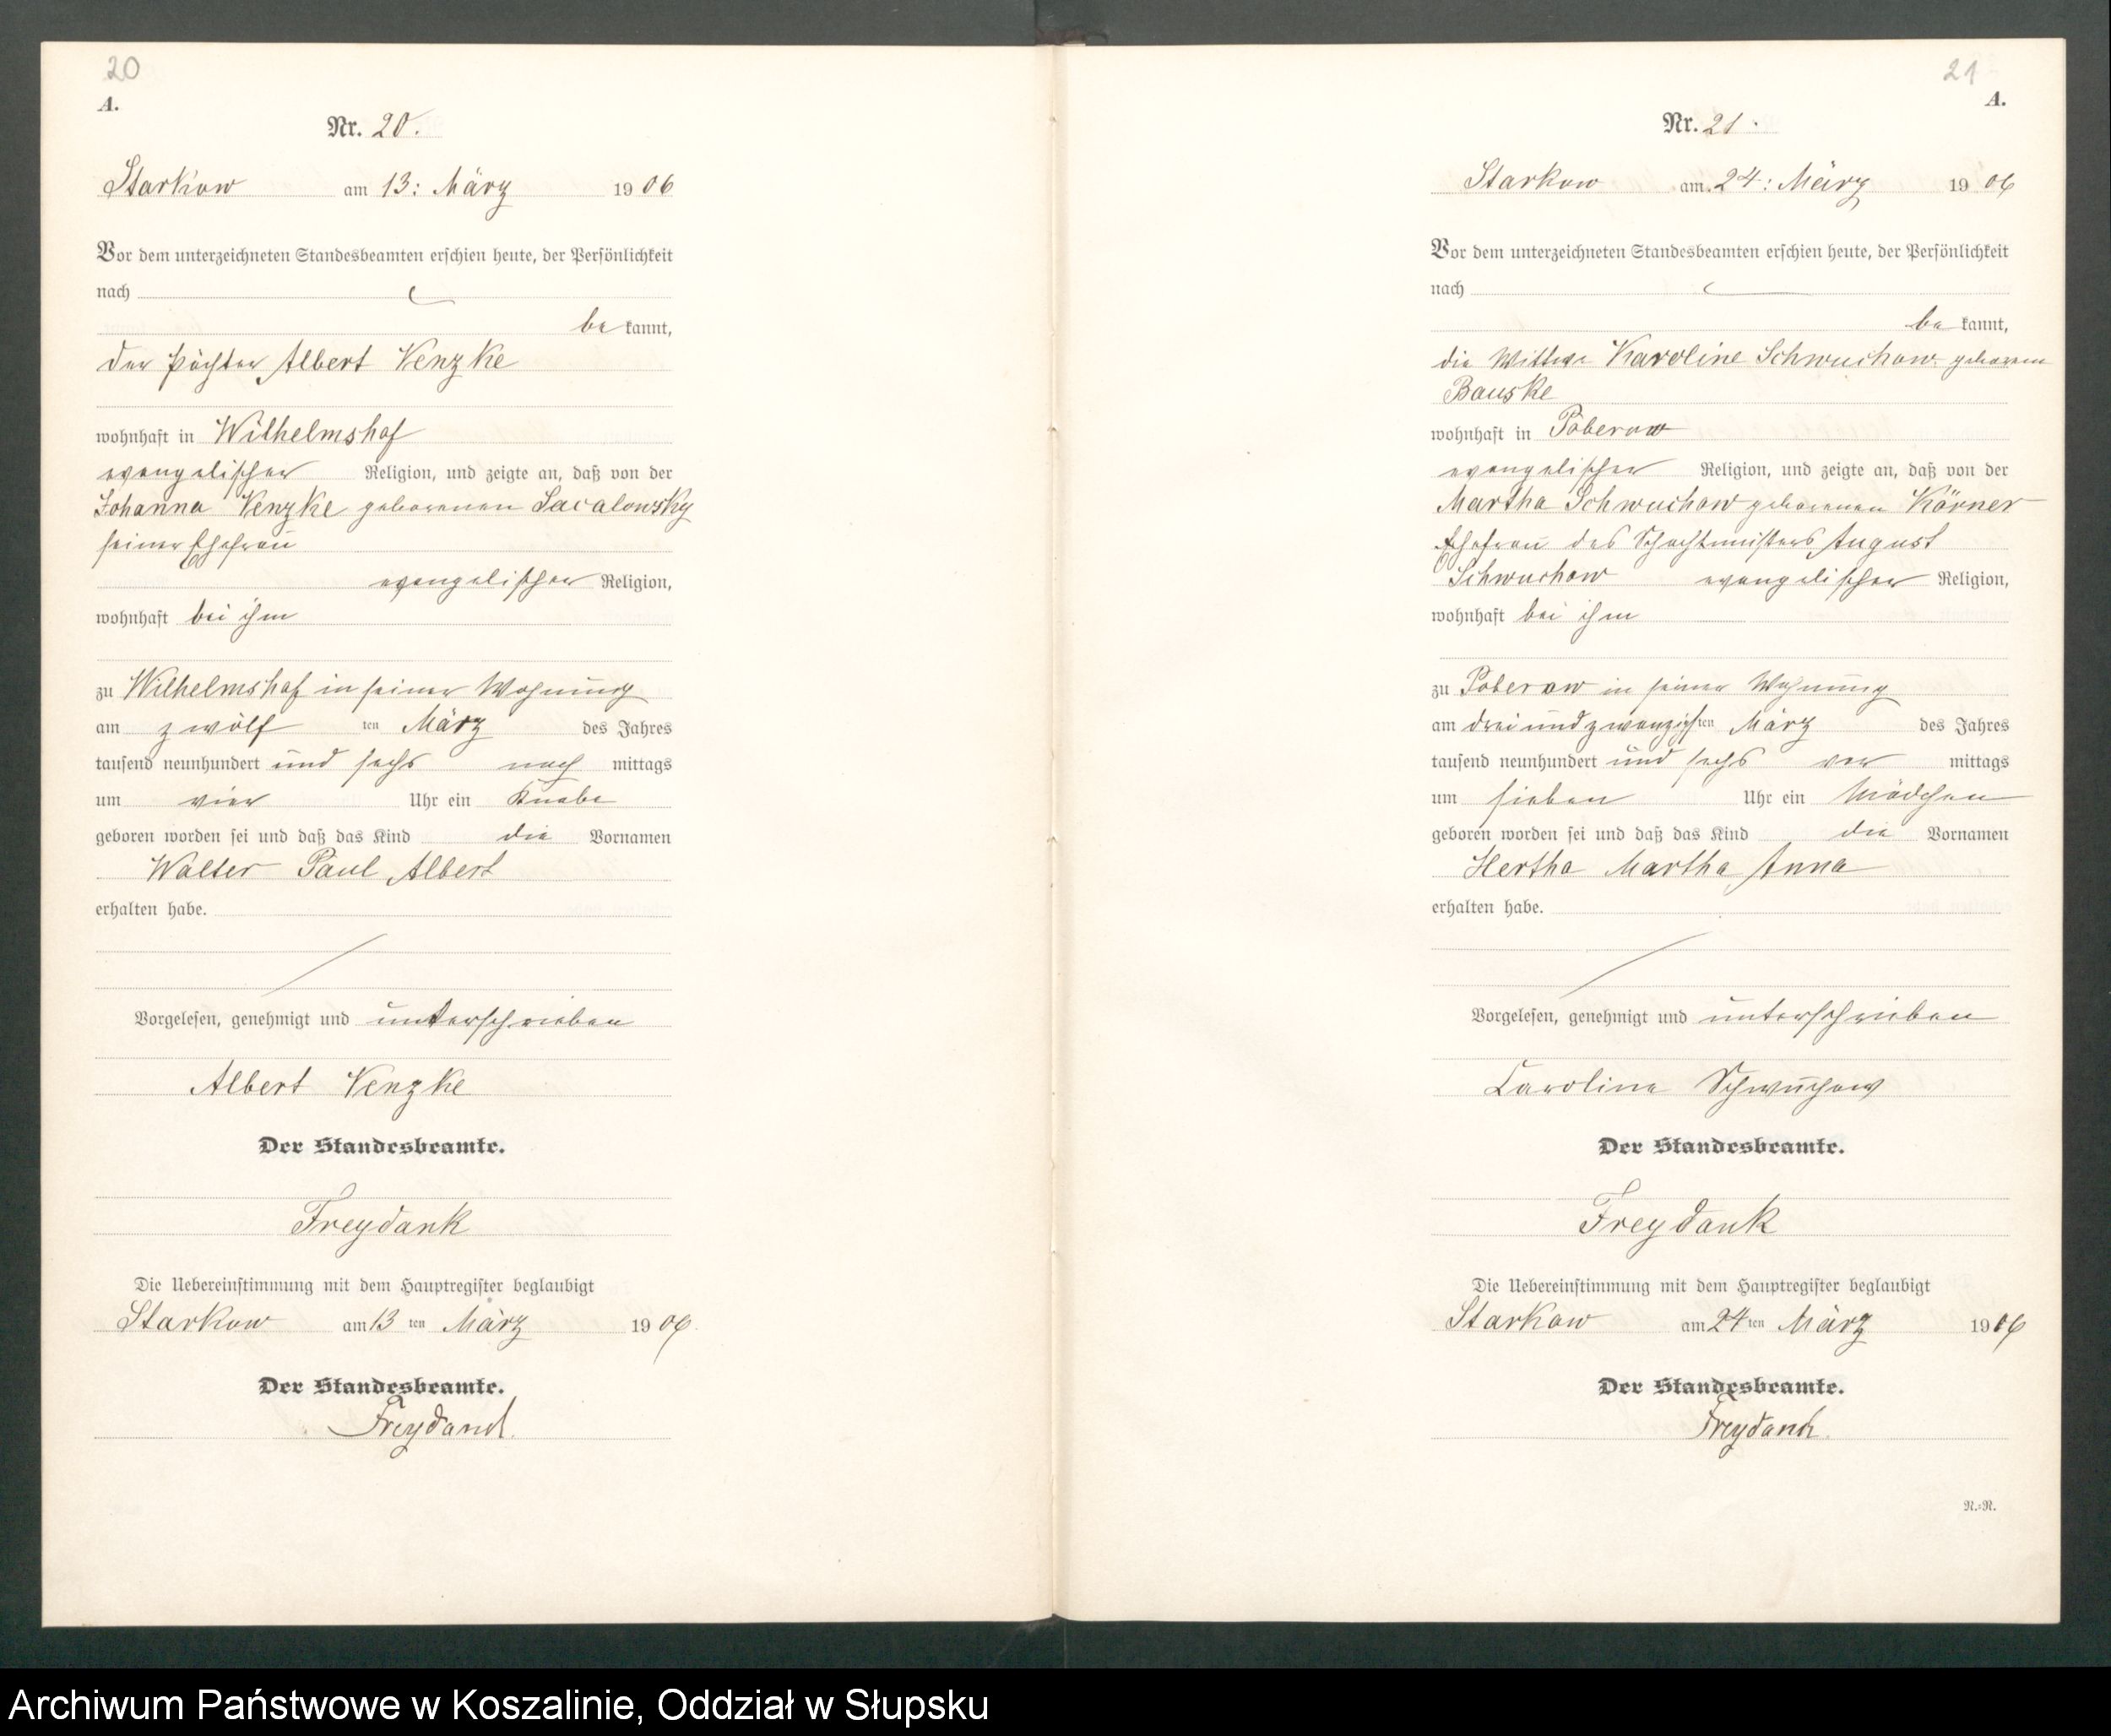 20
A.
Nr. 20.
Starkow am 13: März 1906
Vor dem unterzeichneten Standesbeamten erschien heute, der Persönlichkeit
nach
bekannt,
der Pächter Albert Venzke
wohnhaft in Wilhelmshof
evangelischer Religion, und zeigte an, daß von der
Johanna Venzke geborenen Sacalowsky
seiner Ehefrau
evangelischer Religion,
wohnhaft bei ihm
zu Wilhelmshof in seiner Wohnung
am zwölf ten März des Jahres
tausend neunhundert und sechs nach mittags
um vier Uhr ein Knabe
geboren worden sei und daß das Kind die Vornamen
Walter Paul Albert
erhalten habe.
Vorgelesen, genehmigt und unterschrieben
Albert Venzke
Der Standesbeamte.
Freydank
Die Uebereinstimmung mit dem Hauptregister beglaubigt
Starkow am 13 ten März 1906.
Der Standesbeamte.
Freydank.
21
A.
Nr. 21.
Starkow am 24: März 1906
Vor dem unterzeichneten Standesbeamten erschien heute, der Persönlichkeit
nach
bekannt,
die Wittwe Karoline Schwuchow geborene
Bauske
wohnhaft in Poberow
evangelischer Religion, und zeigte an, daß von der
Martha Schwuchow geborenen Körner
Ehefrau des Schachtmeisters August
Schwuchow evangelischer Religion,
wohnhaft bei ihm
zu Poberow in seiner Wohnung
am dreiundzwanzigsten März des Jahres
tausend neunhundert und sechs vor mittags
um sieben Uhr ein Mädchen
geboren worden sei und daß das Kind die Vornamen
Hertha Martha Anna
erhalten habe.
Vorgelesen, genehmigt und unterschrieben
Caroline Schwuchow
Der Standesbeamte.
Freydank
Die Uebereinstimmung mit dem Hauptregister beglaubigt
Starkow am 24 ten März 1906
Der Standesbeamte.
Freydank.
N.=N.
Archiwum Państwowe w Koszalinie, Oddział w Słupsku